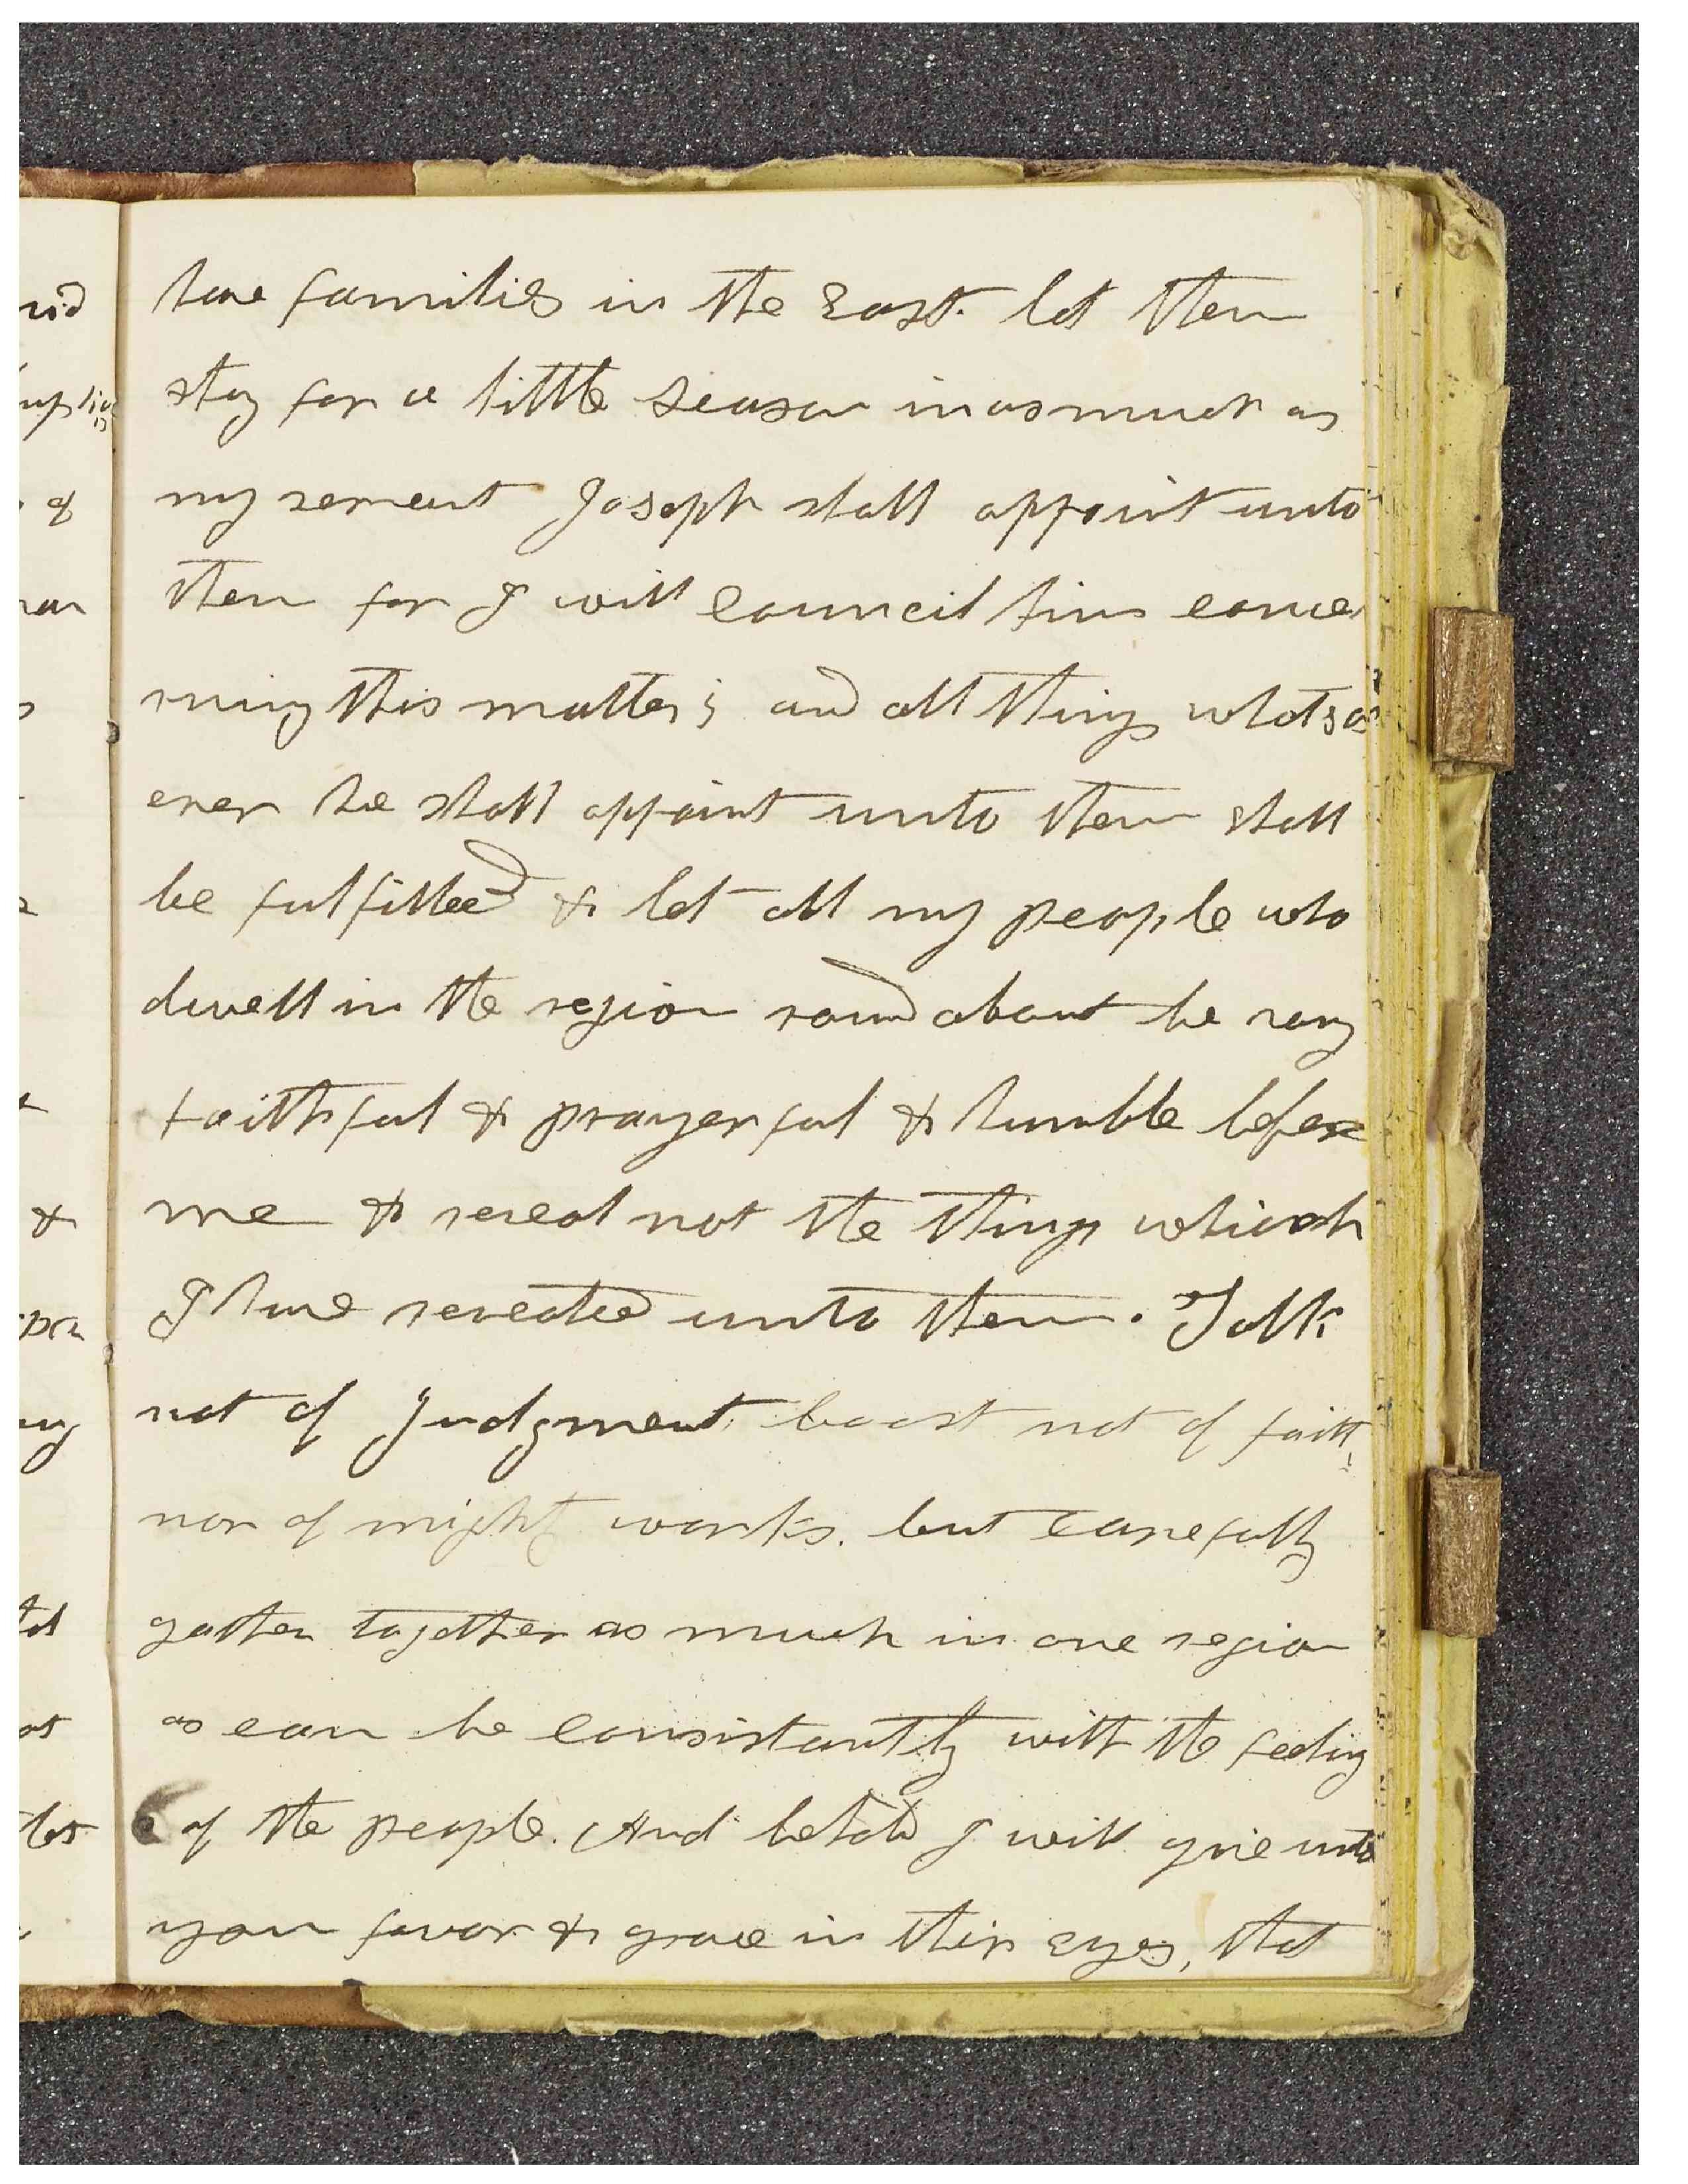 have families in the East. let them
stay for a little season inasmuch as
my servent Joseph shall appoint unto
them for I will council him conce
rning this matter; and all things whatso
ever he shall appoint unto them shall
be fulfilled & let all my people who
dwell in the region round about be very
faithful & prayerful & humble before
me & reveal not the things which
I have revealed unto them. Talk
not of Judgment. boast not of faith,
nor of mighty works. but carefully
gather together as much in one region
as can be consistantly with the feeling
s of the people. And behold I will give unto
you favor & grace in their eyes, that